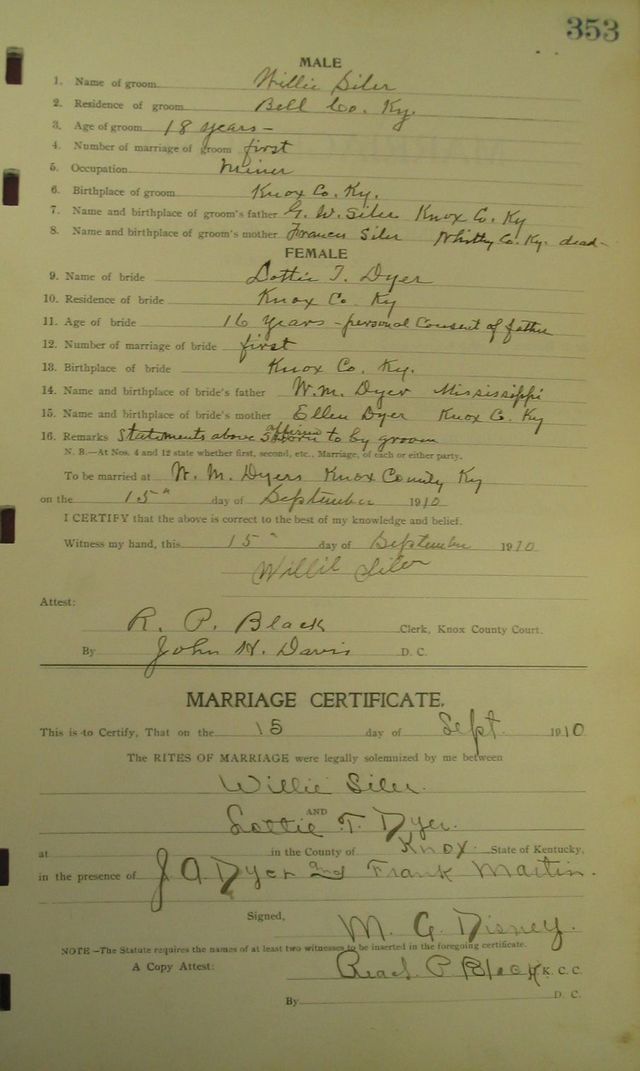 353
MALE
1. Name of groom Willie Siler
2. Residence of groom Bell Co. Ky.
3. Age of groom 18 years -
4. Number of marriage of groom first
5. Occupation Miner
6. Birthplace of groom Knox Co. Ky.
7. Name and birthplace of groom's father G. W. Siler Knox Co. Ky
8. Name and birthplace of groom's mother Frances Siler Whitley Co. Ky. dead -
FEMALE
9. Name of bride Lottie T. Dyer
10. Residence of bride Knox Co Ky
11. Age of bride 16 years - personal Consent of father
12. Number of marriage of bride first
13. Birthplace of bride Knox Co. Ky.
14. Name and birthplace of bride's father W. M. Dyer Mississippi
15. Name and birthplace of bride's mother Ellen Dyer Knox Co. Ky
16. Remarks Statements above affirmed to by groom
N. B.—At Nos. 4 and 12 state whether first, second, etc., Marriage, of each or either party.
To be married at W. M. Dyers Knox County Ky
on the 15" day of September 1910
I CERTIFY that the above is correct to the best of my knowledge and belief.
Witness my hand, this 15" day of September 1910
Willie Siler
Attest:
R. P. Black Clerk, Knox County Court.
By John H. Davis D. C.
MARRIAGE CERTIFICATE.
This is to Certify, That on the 15 day of Sept. 1910
The RITES OF MARRIAGE were legally solemnized by me between
Willie Siler.
AND
Lottie T. Dyer.
at in the County of Knox State of Kentucky,
in the presence of J A Dyer and Frank Martin.
Signed,
M. G. Disney.
NOTE—The Statute requires the names of at least two witnesses to be inserted in the foregoing certificate.
A Copy Attest: Read P Black K. C. C.
By D. C.